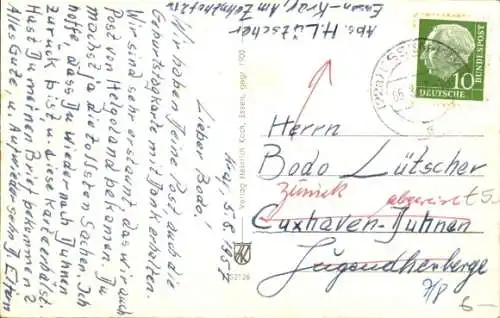 Abs. H. Lütscher
Essen-Kray Am Zehnthof
Kray, 5.8.1957
Lieber Bodo!
Wir haben Deine Post auch die
Geburtstagkarte mit Dank erhalten.
Wir sind sehr erstaunt das wir auch
Post von Helgoland bekamen. Du
machst ja die tollsten Sachen. Ich
hoffe, dass Du wieder nach Duhnen
zurück bist u. diese Karte erhälst.
Hast Du meinen Brief bekommen?
Alles Gute, u. Aufwiedersehn D. Eltern
Verlag Heinrich Koch, Essen, gegr. 1900
DEUTSCHE
BUNDESPOST
10
Herrn
Bodo Lütscher
zurück
abgereist
Cuxhaven-Duhnen
Jugendherberge